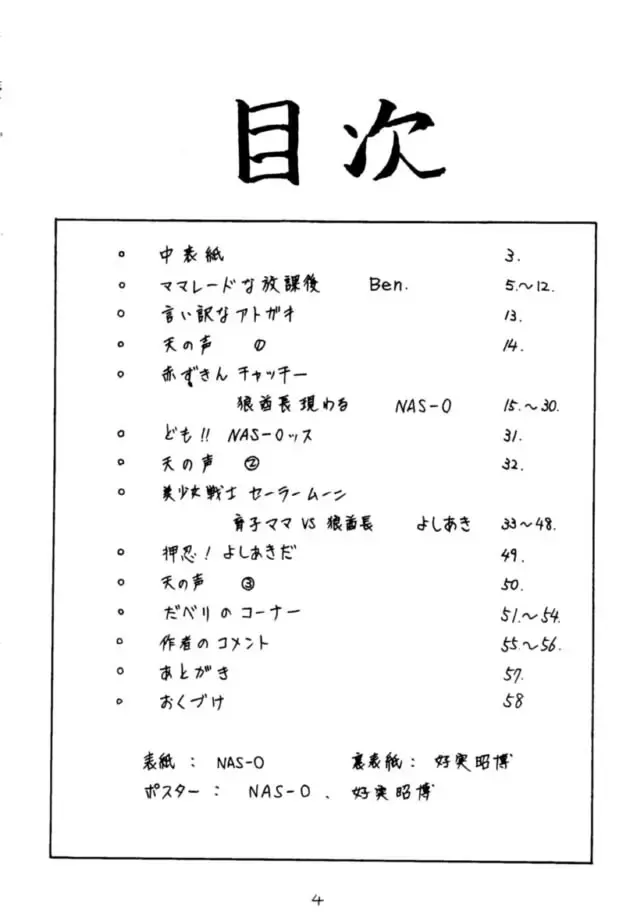 目次
○ 中表紙 3.
○ ママレードな放課後 Ben. 5.〜12.
○ 言い訳なアトガキ 13.
○ 天の声 ① 14.
○ 赤ずきんチャッチー
狼酋長現わる NAS-O 15.〜30.
○ ども!! NAS-Oッス 31.
○ 天の声 ② 32.
○ 美少女戦士セーラームーン
育子ママVS狼酋長 よしあき 33〜48.
○ 押忍!よしあきだ 49.
○ 天の声 ③ 50.
○ だべりのコーナー 51.〜54.
○ 作者のコメント 55.〜56.
○ あとがき 57.
○ おくづけ 58
表紙: NAS-O 裏表紙: 好実昭博
ポスター: NAS-O、好実昭博
4